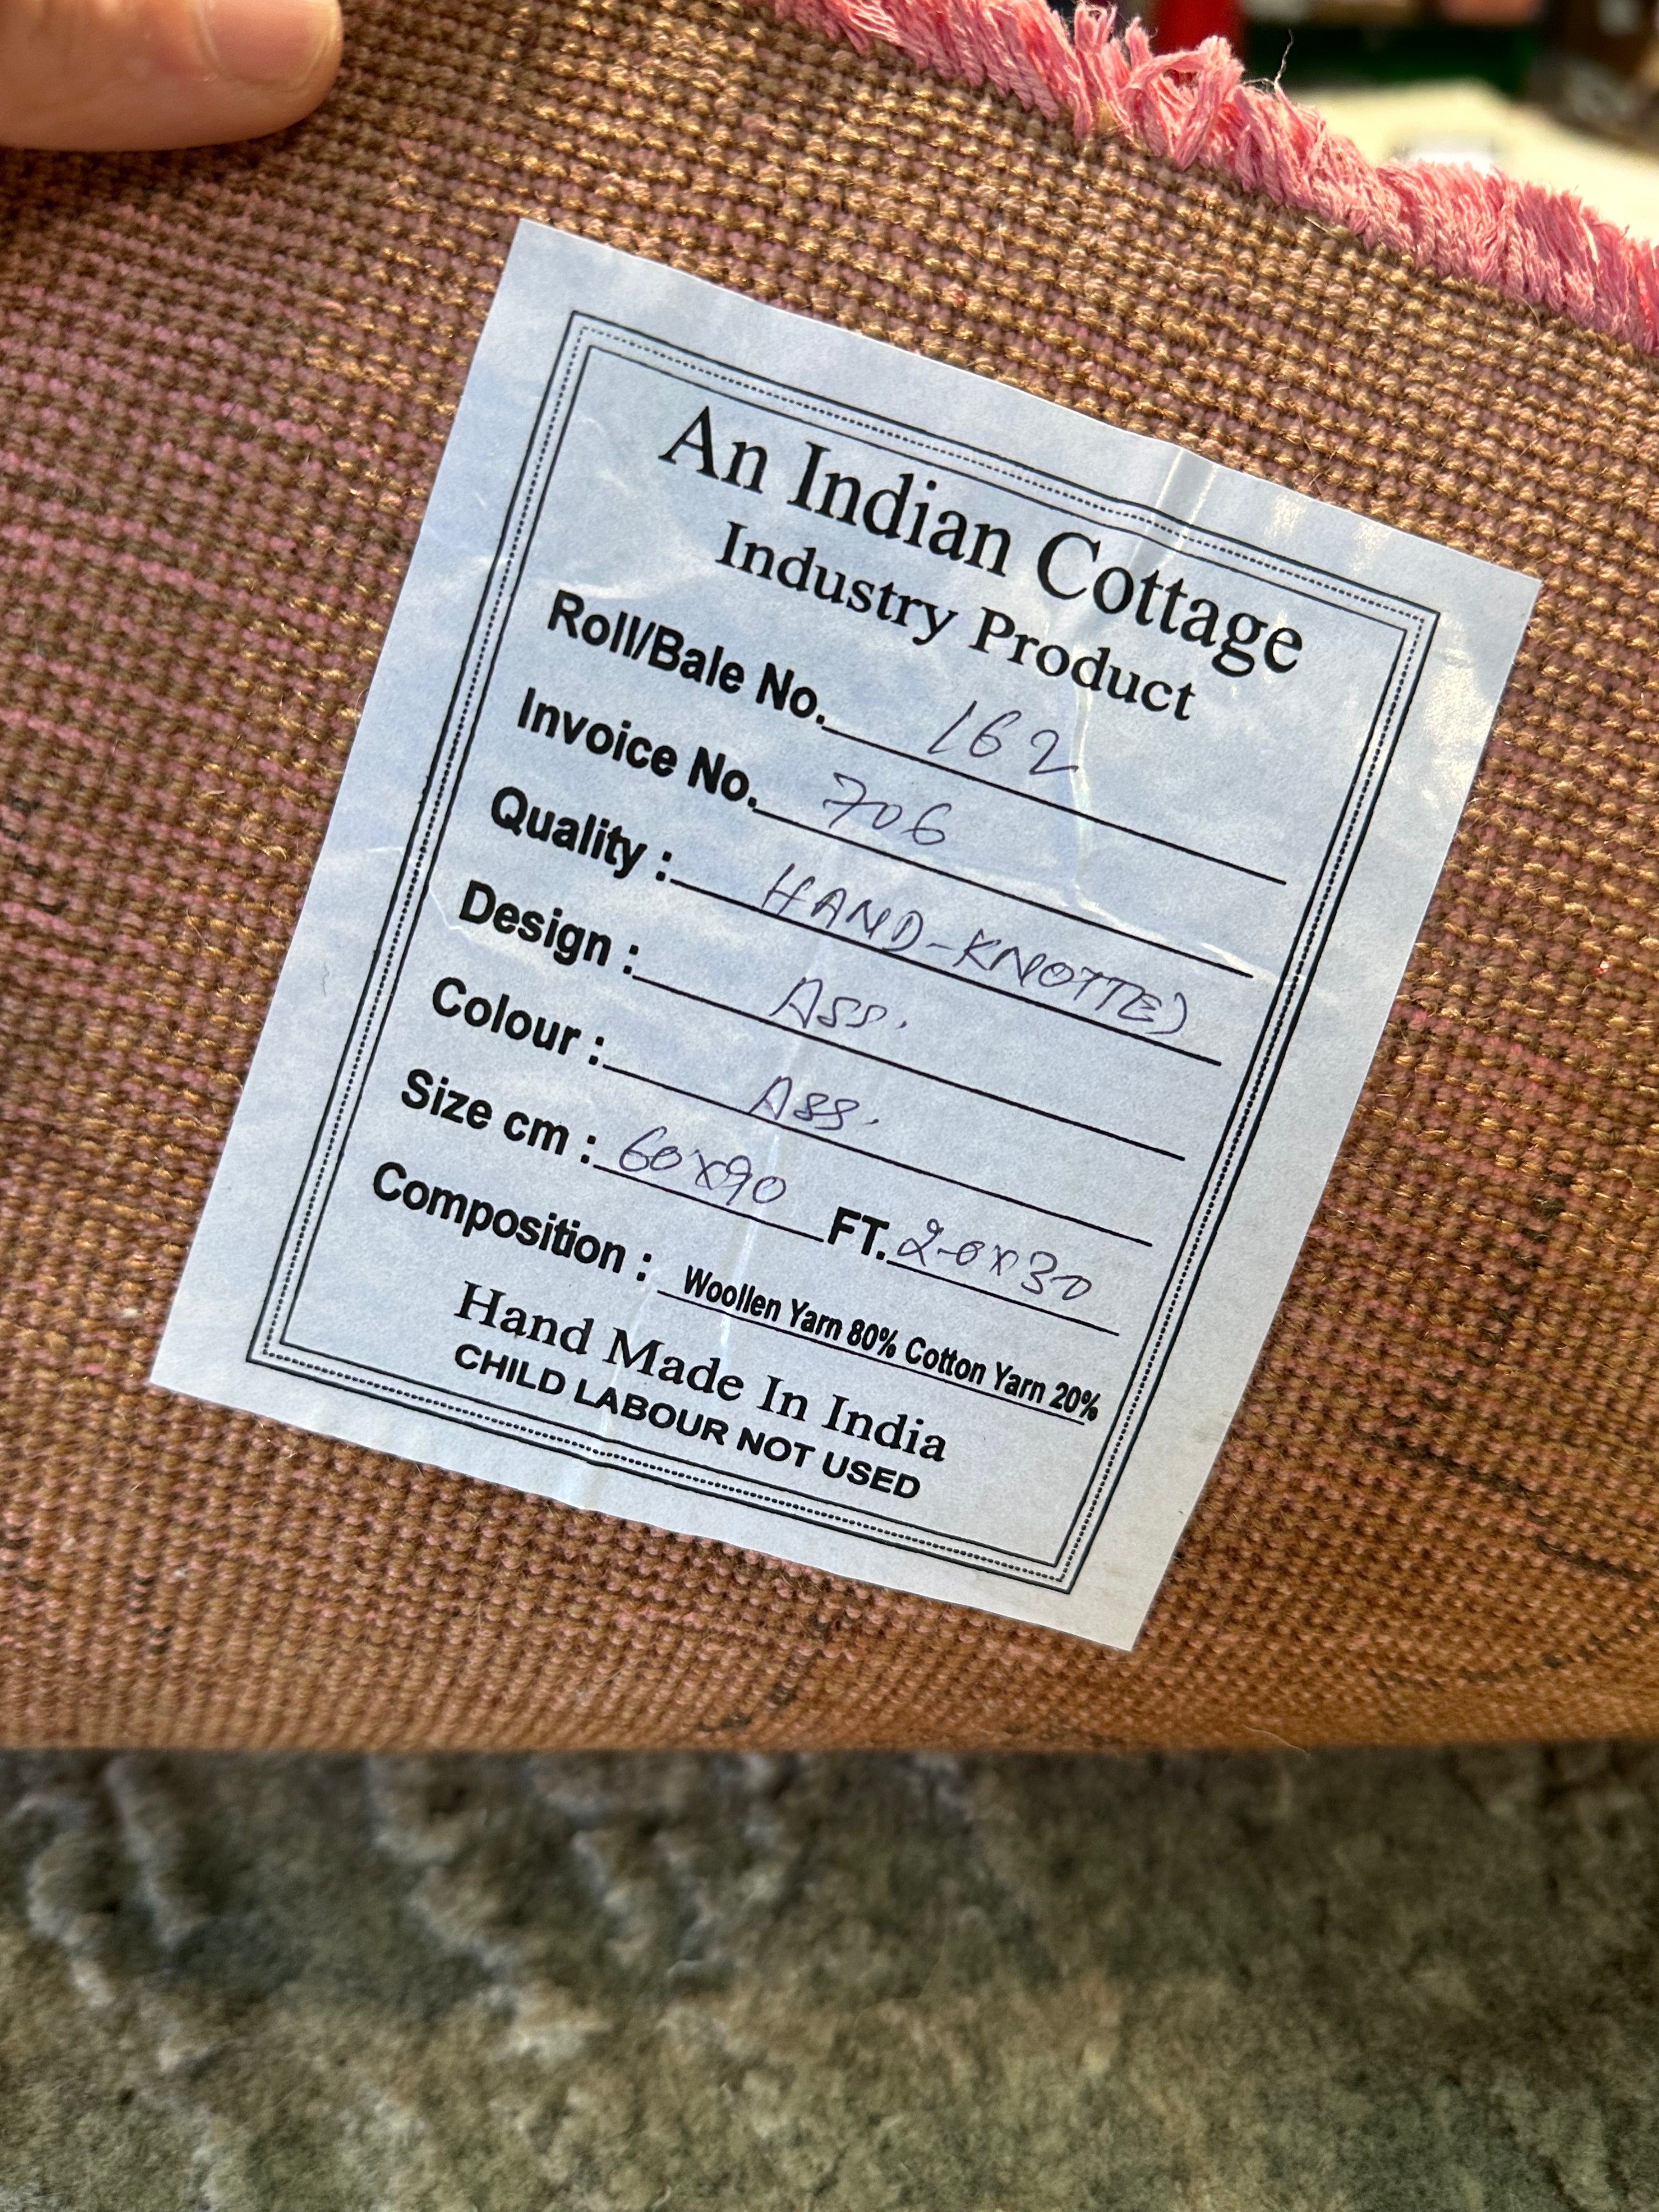 An Indian Cottage
Industry Product
Roll/Bale No. 162
Invoice No. 706
Quality : HAND-KNOTTED
Design : ASS.
Colour : ASS.
Size cm : 60x90 FT. 2-0x30
Composition : Woollen Yarn 80% Cotton Yarn 20%
Hand Made In India
CHILD LABOUR NOT USED